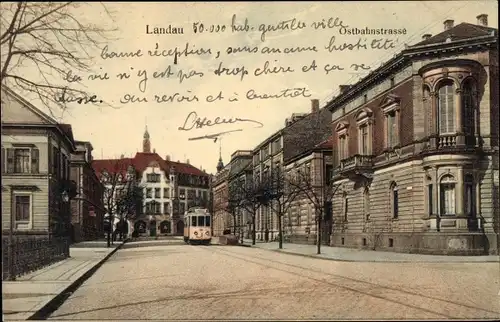 Landau
Ostbahnstrasse
50.000 hab. gentille ville
bonne réception, sans aucune hostilité
la vie n'y est pas trop chère et ça se
Au revoir et à bientôt